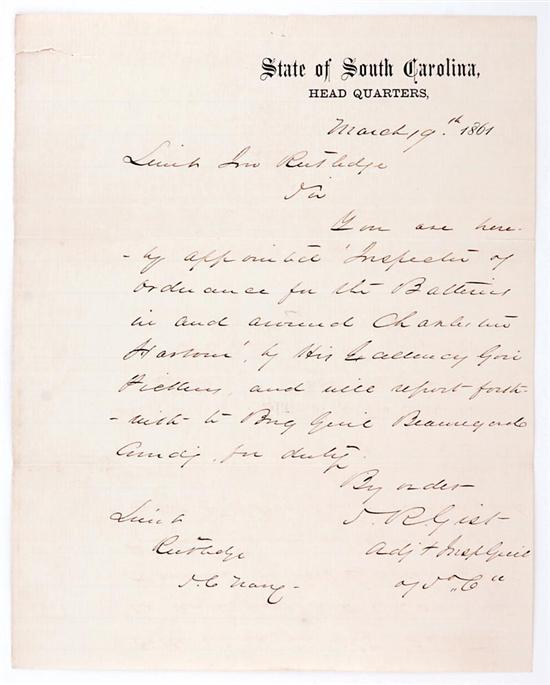 State of South Carolina,
HEAD QUARTERS,
March 19th 1861
Lieut Jno Rutledge
Sir
You are here-
-by appointed 'Inspector of
Ordnance for the Batteries
in and around Charleston
Harbour', by His Excellency Gov
Pickens, and will report forth-
-with to Brig Genl Beauregard
Comdg, for duty.
By order
S. R. Gist
Adj & Insp Genl
of So. Ca
Lieut
Rutledge
S. C. Navy -